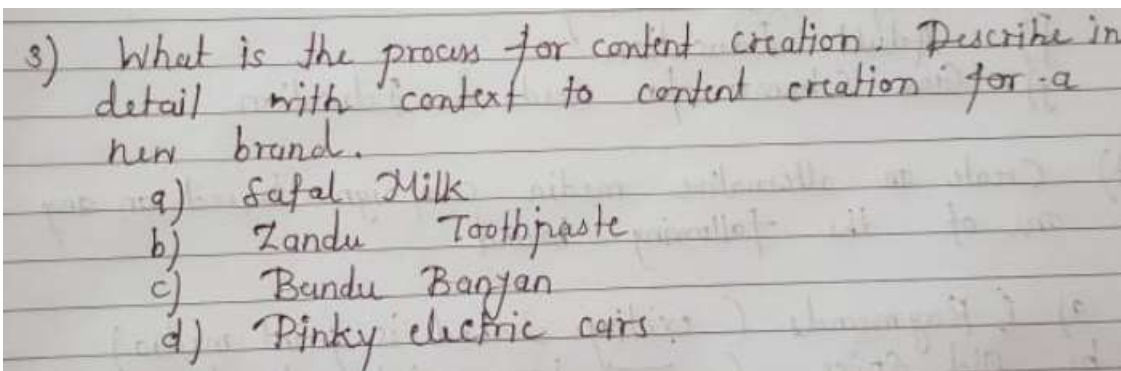 3) What is the process for content creation. Describe in
detail with context to content creation for a
new brand.
a) Safal Milk
b) Zandu Toothpaste
c) Bandu Banyan
d) Pinky electric cars.